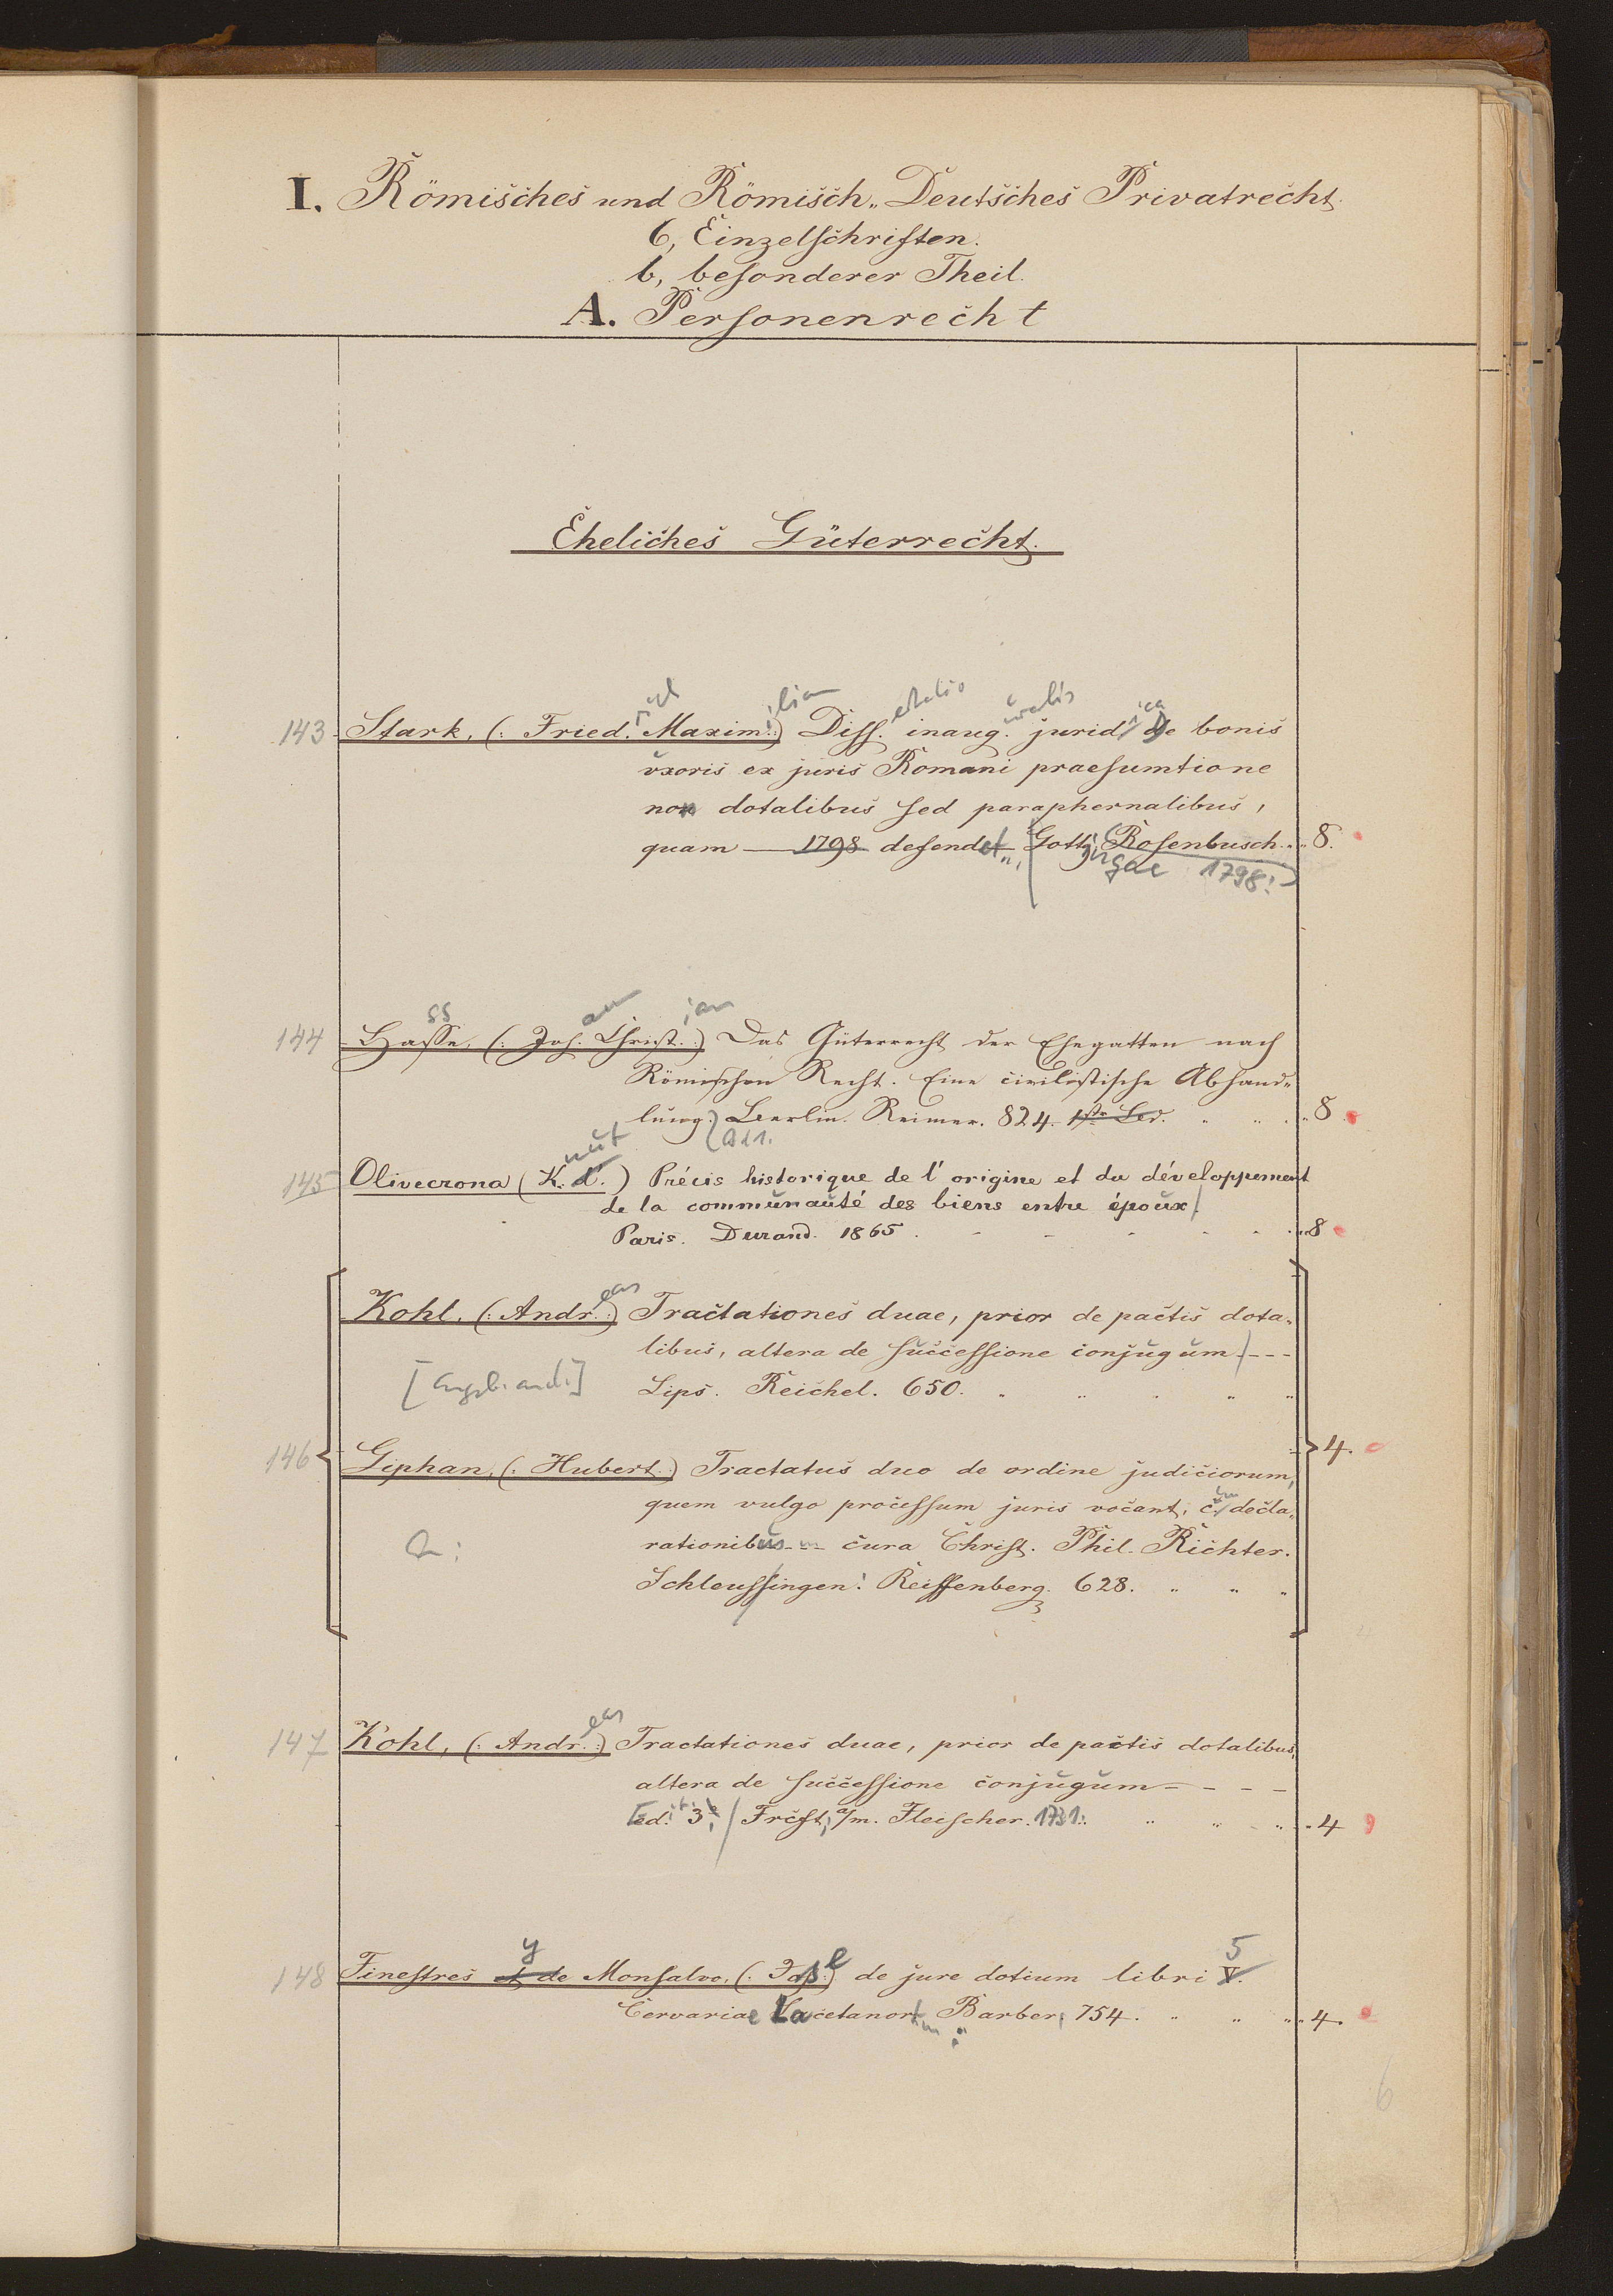 I. Römisches und Römisch-Deutsches Privatrecht.
6, Einzelschriften.
b, besonderer Theil.
A. Personenrecht
Eheliches Güterrecht.
143 Stark, (: Fried.rich Maxim.ilian :) Diss.ertatio inaug.uralis jurid.ica de bonis
uxoris ex juris Romani praesumtione
non dotalibus sed paraphernalibus,
quam — 1798 defendet „ Gottingae Rosenbusch. „ 8.
1798.
144 Hasse, (: Joh.ann Christ.ian :) Das Güterrecht der Ehegatten nach
Römischen Recht. Eine civilistische Abhand-
lung. Berlin. Reimer. 824. 1ster Bd. „ 8
Bd 1.
145 Olivecrona (Knut d'.) Précis historique de l'origine et du développement
de la communauté des biens entre époux.
Paris. Durand. 1865. „ 8
Kohl, (: Andr.eas :) Tractationes duae, prior de pactis dota-
libus, altera de successione conjugum - - -
Lips. Reichel. 650.
[Angeb. and.]
146 Giphan, (: Hubert :) Tractatus duo de ordine judiciorum,
quem vulgo processum juris vocant, cum decla-
rationibus - - cura Christ. Phil. Richter.
Schleussingen: Reiffenberg. 628. 4.
147 Kohl, (: Andr.eas :) Tractationes duae, prior de pactis dotalibus,
altera de successione conjugum - - - -
Ed. 3. Frcft. a/m. Fleischer. 1731. „ 4
148 Finestres et y de Monsalvo, (: Jos. :) de jure dotium libri V. 5
Cervariae Lacetanorum Barber, 754. „ 4.
6